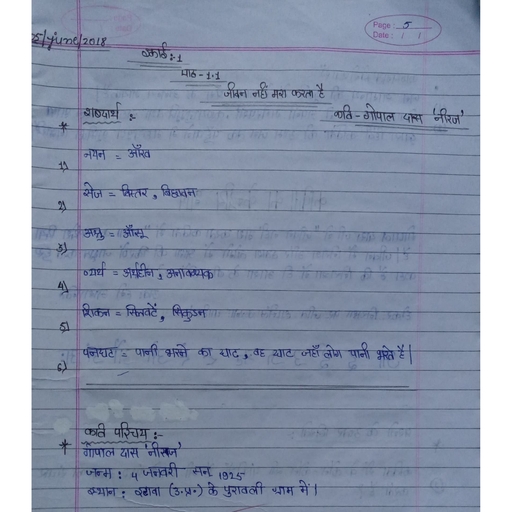 Page : 5
Date : / /
25/june/2018
इकाई:-1
पाठ-1.1
जीवन नहीं मरा करता है
* शब्दार्थ :-
कवि - गोपाल दास 'नीरज'
1) नयन = आँख
2) सेज = बिस्तर, बिछावन
3) अश्रु = आँसू
4) व्यर्थ = अर्थहीन, अनावश्यक
5) शिकन = सिलवटें, सिकुड़न
6) पनघट = पानी भरने का घाट, वह घाट जहाँ लोग पानी भरते है|
* कवि परिचय :-
गोपाल दास 'नीरज'
जन्म : 4 जनवरी सन् 1925
स्थान : इटावा (उ.प्र.) के पुरावली ग्राम में|